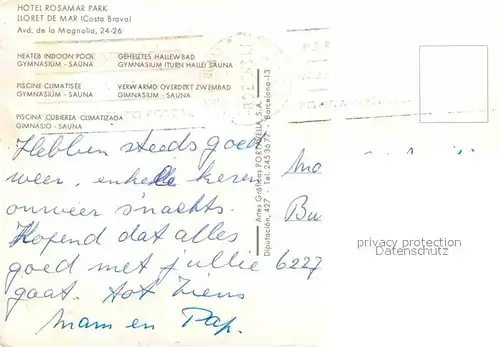 HOTEL ROSAMAR PARK
LLORET DE MAR (Costa Brava)
Avd. de la Magnolia, 24-26
HEATEB INDOON POOL
GYMNASIUM - SAUNA
GEHEIZTES HALLEWBAD
GYMNASIUM (TURN HALLE) SAUNA
PISCINE CLIMATISÉE
GYMNASIÜM - SAUNA
VERWARMD OVERDEKT ZWEMBAD
GIMNASIUM - SAUNA
PISCINA CUBIERZA CLIMATIZADA
GIMNASIO - SAUNA
Hebben steeds goed
weer, enkele keren
onweer s'nachts.
Hopend dat alles
goed met jullie
gaat. tot ziens
Mam en Pap.
Artes Gráficas PORTABELLA, S.A.
Diputación, 427 - Tel. 245 36 77 - Barcelona-13
Mo
Bu
6227
privacy protection
Datenschutz